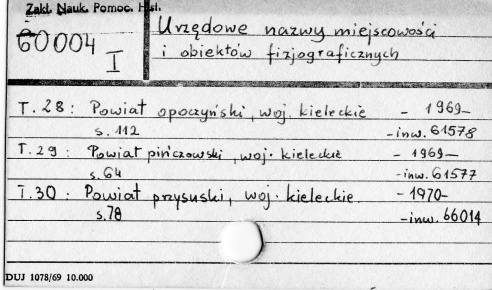 Zakł. Nauk. Pomoc. Hist.
60004
I
Urzędowe nazwy miejscowości
i obiektów fizjograficznych
T. 28: Powiat opoczyński, woj. kieleckie - 1969-
s. 112 - inw. 61578
T. 29: Powiat pińczowski, woj. kieleckie - 1969-
s. 64 - inw. 61577
T. 30: Powiat przysuski, woj. kieleckie. - 1970-
s. 78 - inw. 66014
DUJ 1078/69 10.000